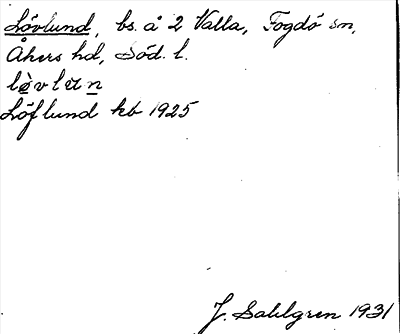 Lövlund, bs. å 2 Valla, Fogdö sn,
Åkers hd, Söd. l.
lòvlun
Löflund kb 1925
J. Sahlgren 1931